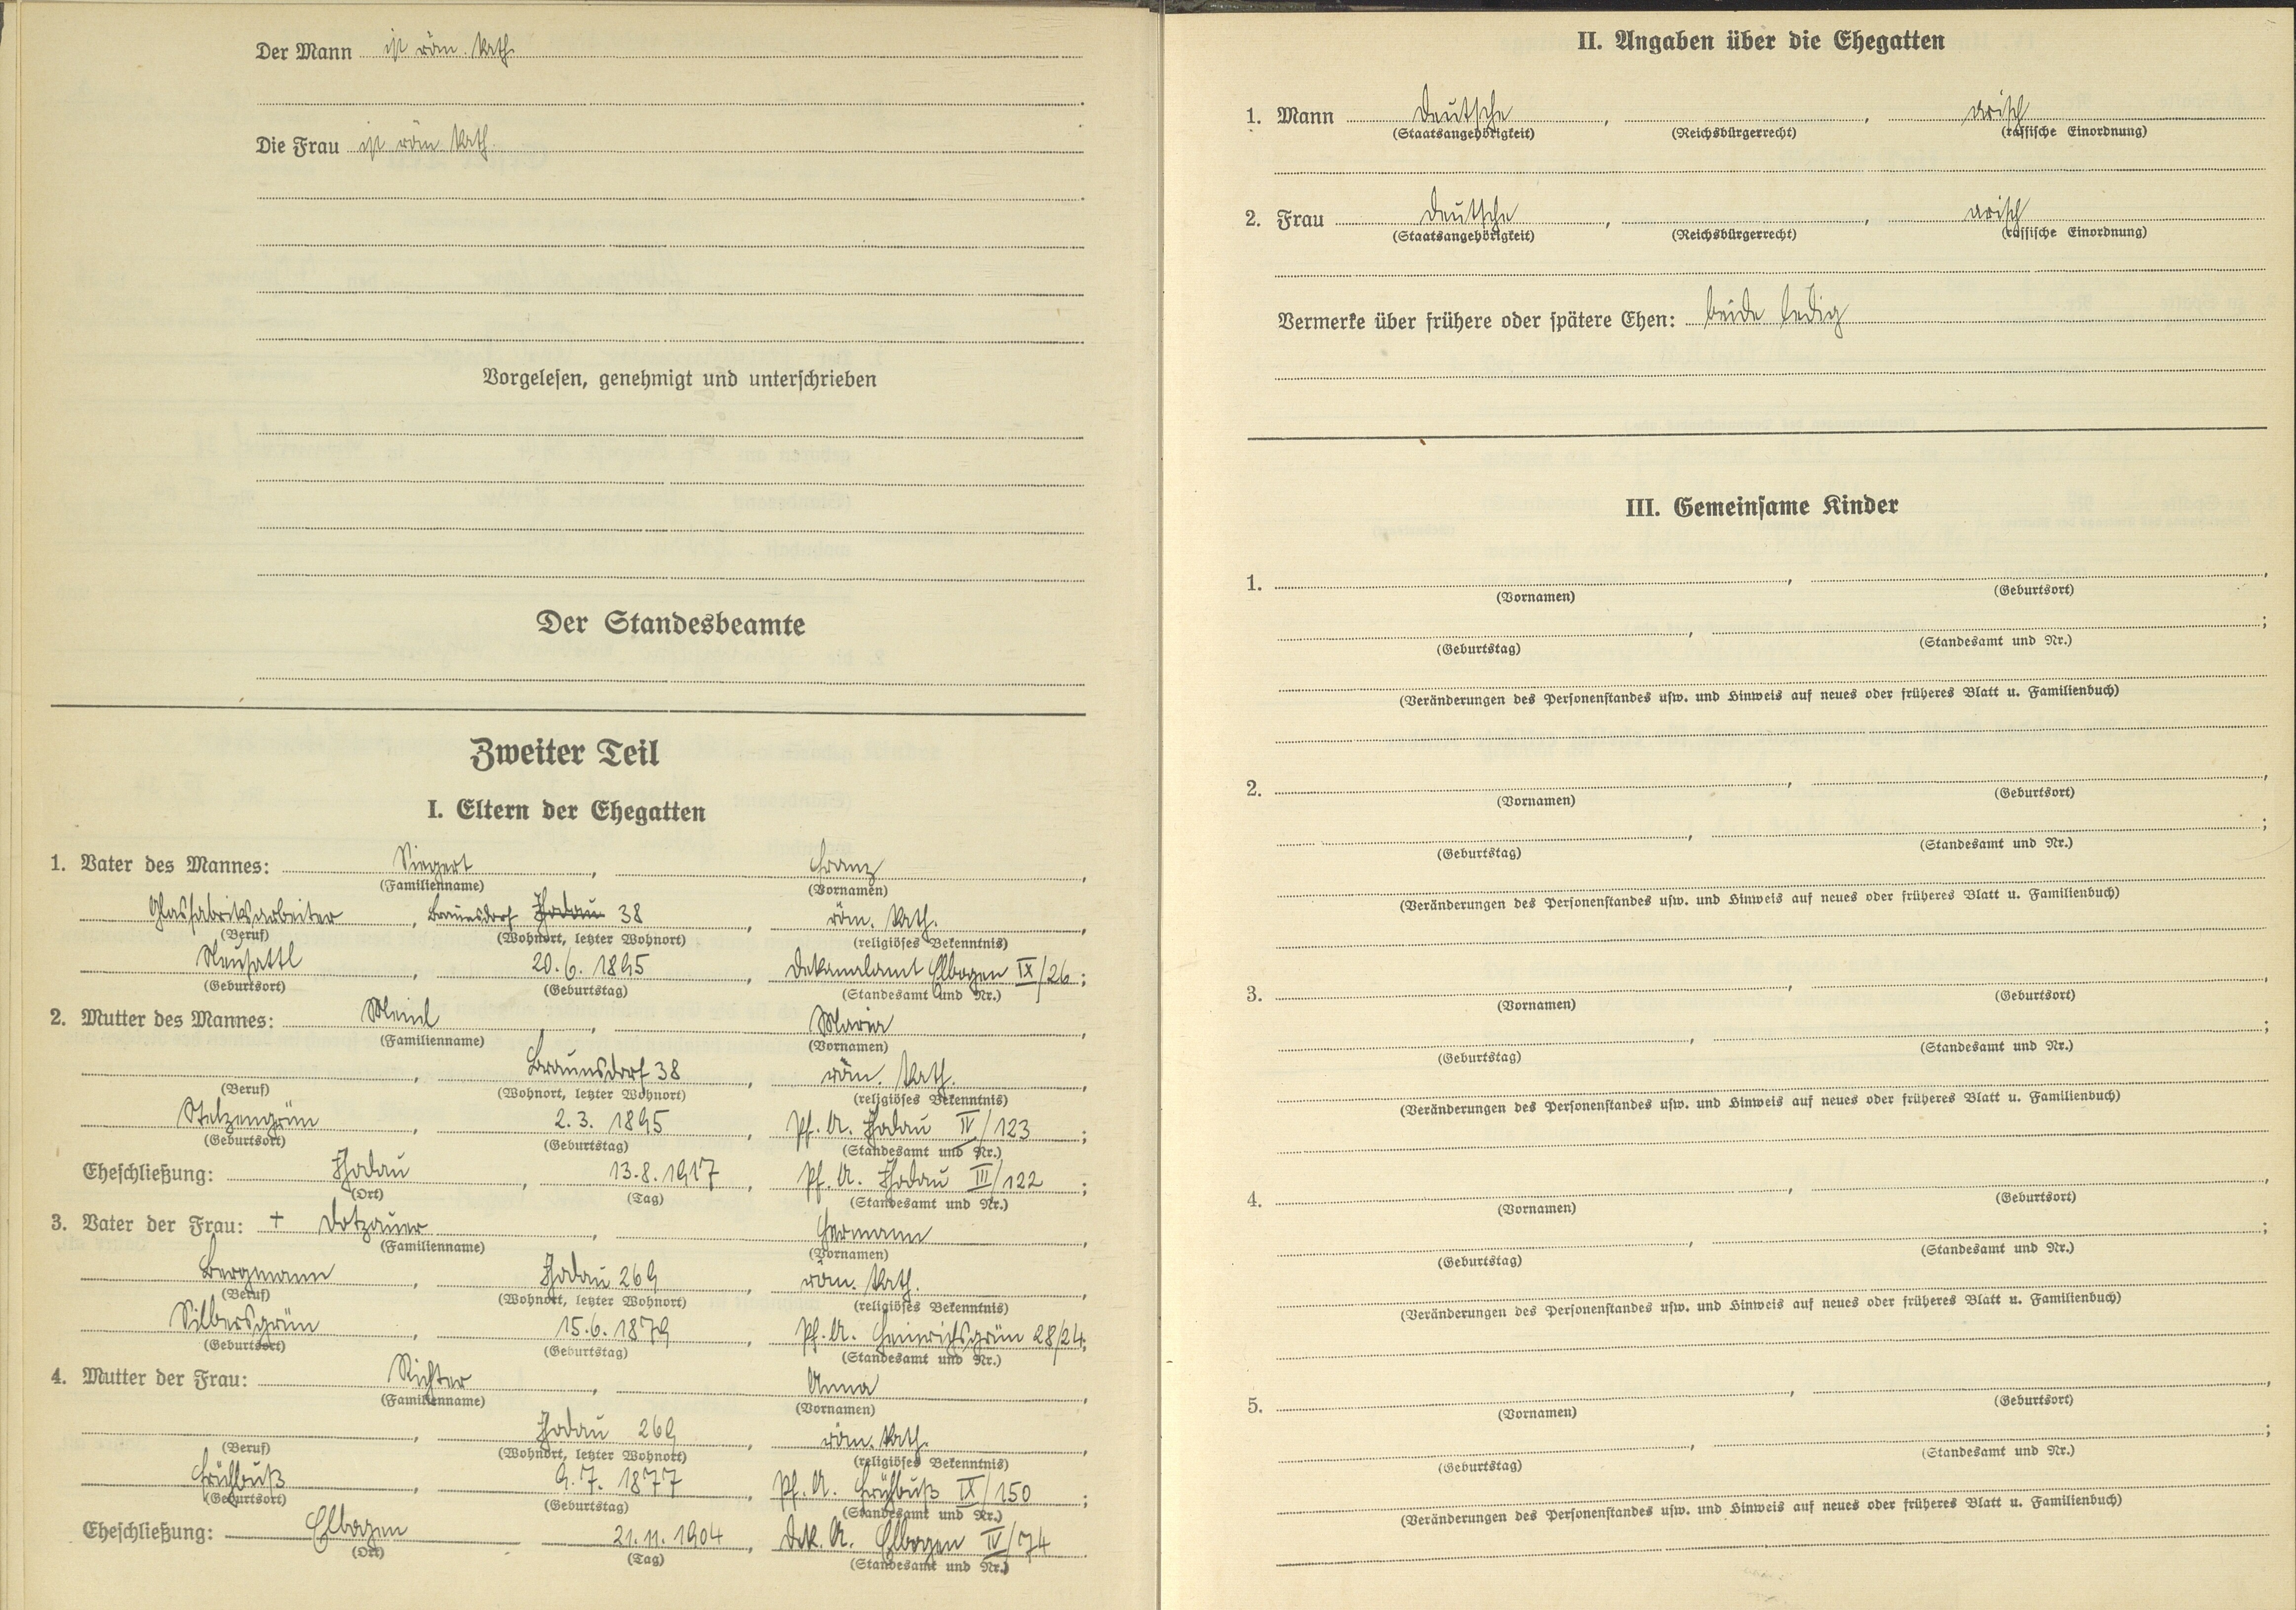 Der Mann ist röm. kath.
Die Frau ist röm. kath.
Vorgelesen, genehmigt und unterschrieben
Der Standesbeamte
Zweiter Teil
I. Eltern der Ehegatten
1. Vater des Mannes: Siegert, Franz,
(Familienname) (Vornamen)
Glasfabriksarbeiter, Braunsdorf Chodau 38, röm. kath.,
(Beruf) (Wohnort, letzter Wohnort) (religiöses Bekenntnis)
Neusattl, 20.6.1895, Dekanalamt Elbogen IX/26;
(Geburtsort) (Geburtstag) (Standesamt und Nr.)
2. Mutter des Mannes: Meinl, Maria,
(Familienname) (Vornamen)
, Braunsdorf 38, röm. kath.,
(Beruf) (Wohnort, letzter Wohnort) (religiöses Bekenntnis)
Stelzengrün, 2.3.1895, Pf. A. Chodau IV/123;
(Geburtsort) (Geburtstag) (Standesamt und Nr.)
Eheschließung: Chodau, 13.8.1917, Pf. A. Chodau III/122;
(Ort) (Tag) (Standesamt und Nr.)
3. Vater der Frau: + Dotzauer, Hermann,
(Familienname) (Vornamen)
Bergmann, Chodau 269, röm. kath.,
(Beruf) (Wohnort, letzter Wohnort) (religiöses Bekenntnis)
Silbersgrün, 15.6.1879, Pf. A. Heinrichsgrün 28/24;
(Geburtsort) (Geburtstag) (Standesamt und Nr.)
4. Mutter der Frau: Richter, Anna,
(Familienname) (Vornamen)
, Chodau 269, röm. kath.,
(Beruf) (Wohnort, letzter Wohnort) (religiöses Bekenntnis)
Frühbuß, 9.7.1877, Pf. A. Frühbuß IX/150;
(Geburtsort) (Geburtstag) (Standesamt und Nr.)
Eheschließung: Elbogen 21.11.1904, Dek. A. Elbogen IV/74.
(Ort) (Tag) (Standesamt und Nr.)
II. Angaben über die Ehegatten
1. Mann Deutsche, , arisch
(Staatsangehörigkeit) (Reichsbürgerrecht) (rassische Einordnung)
2. Frau Deutsche, , arisch
(Staatsangehörigkeit) (Reichsbürgerrecht) (rassische Einordnung)
Vermerke über frühere oder spätere Ehen: beide ledig
III. Gemeinsame Kinder
1. , ,
(Vornamen) (Geburtsort)
, ;
(Geburtstag) (Standesamt und Nr.)
(Veränderungen des Personenstandes usw. und Hinweis auf neues oder früheres Blatt u. Familienbuch)
2. , ,
(Vornamen) (Geburtsort)
, ;
(Geburtstag) (Standesamt und Nr.)
(Veränderungen des Personenstandes usw. und Hinweis auf neues oder früheres Blatt u. Familienbuch)
3. , ,
(Vornamen) (Geburtsort)
, ;
(Geburtstag) (Standesamt und Nr.)
(Veränderungen des Personenstandes usw. und Hinweis auf neues oder früheres Blatt u. Familienbuch)
4. , ,
(Vornamen) (Geburtsort)
, ;
(Geburtstag) (Standesamt und Nr.)
(Veränderungen des Personenstandes usw. und Hinweis auf neues oder früheres Blatt u. Familienbuch)
5. , ,
(Vornamen) (Geburtsort)
, ;
(Geburtstag) (Standesamt und Nr.)
(Veränderungen des Personenstandes usw. und Hinweis auf neues oder früheres Blatt u. Familienbuch)